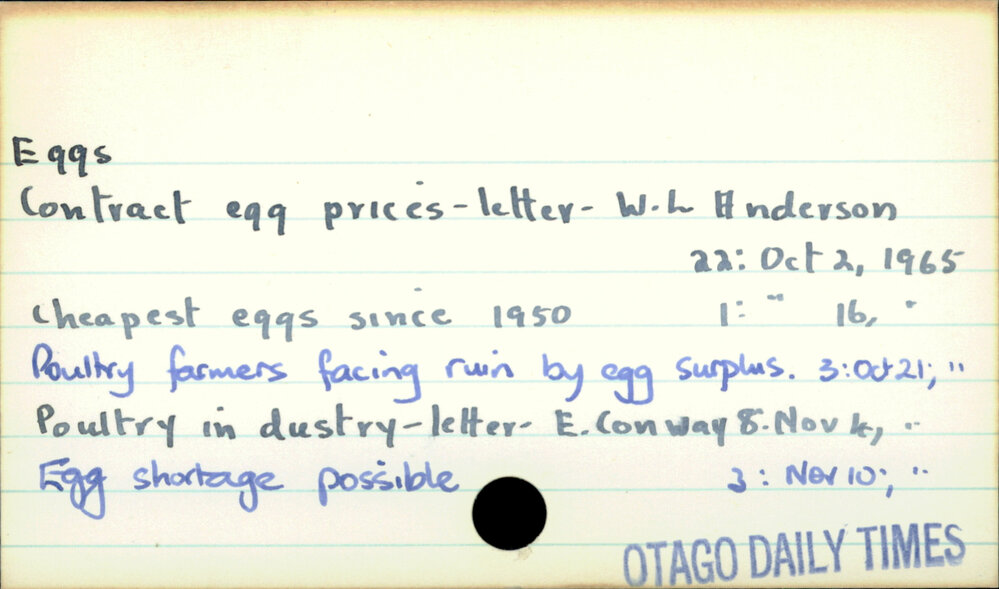 Eggs
Contract egg prices - letter - W.L Anderson
22: Oct 2, 1965
Cheapest eggs since 1950 1: " 16, "
Poultry farmers facing ruin by egg surplus. 3: Oct 21; "
Poultry in dustry - letter - E. Conway 8. Nov 4, "
Egg shortage possible 3: Nov 10; "
OTAGO DAILY TIMES